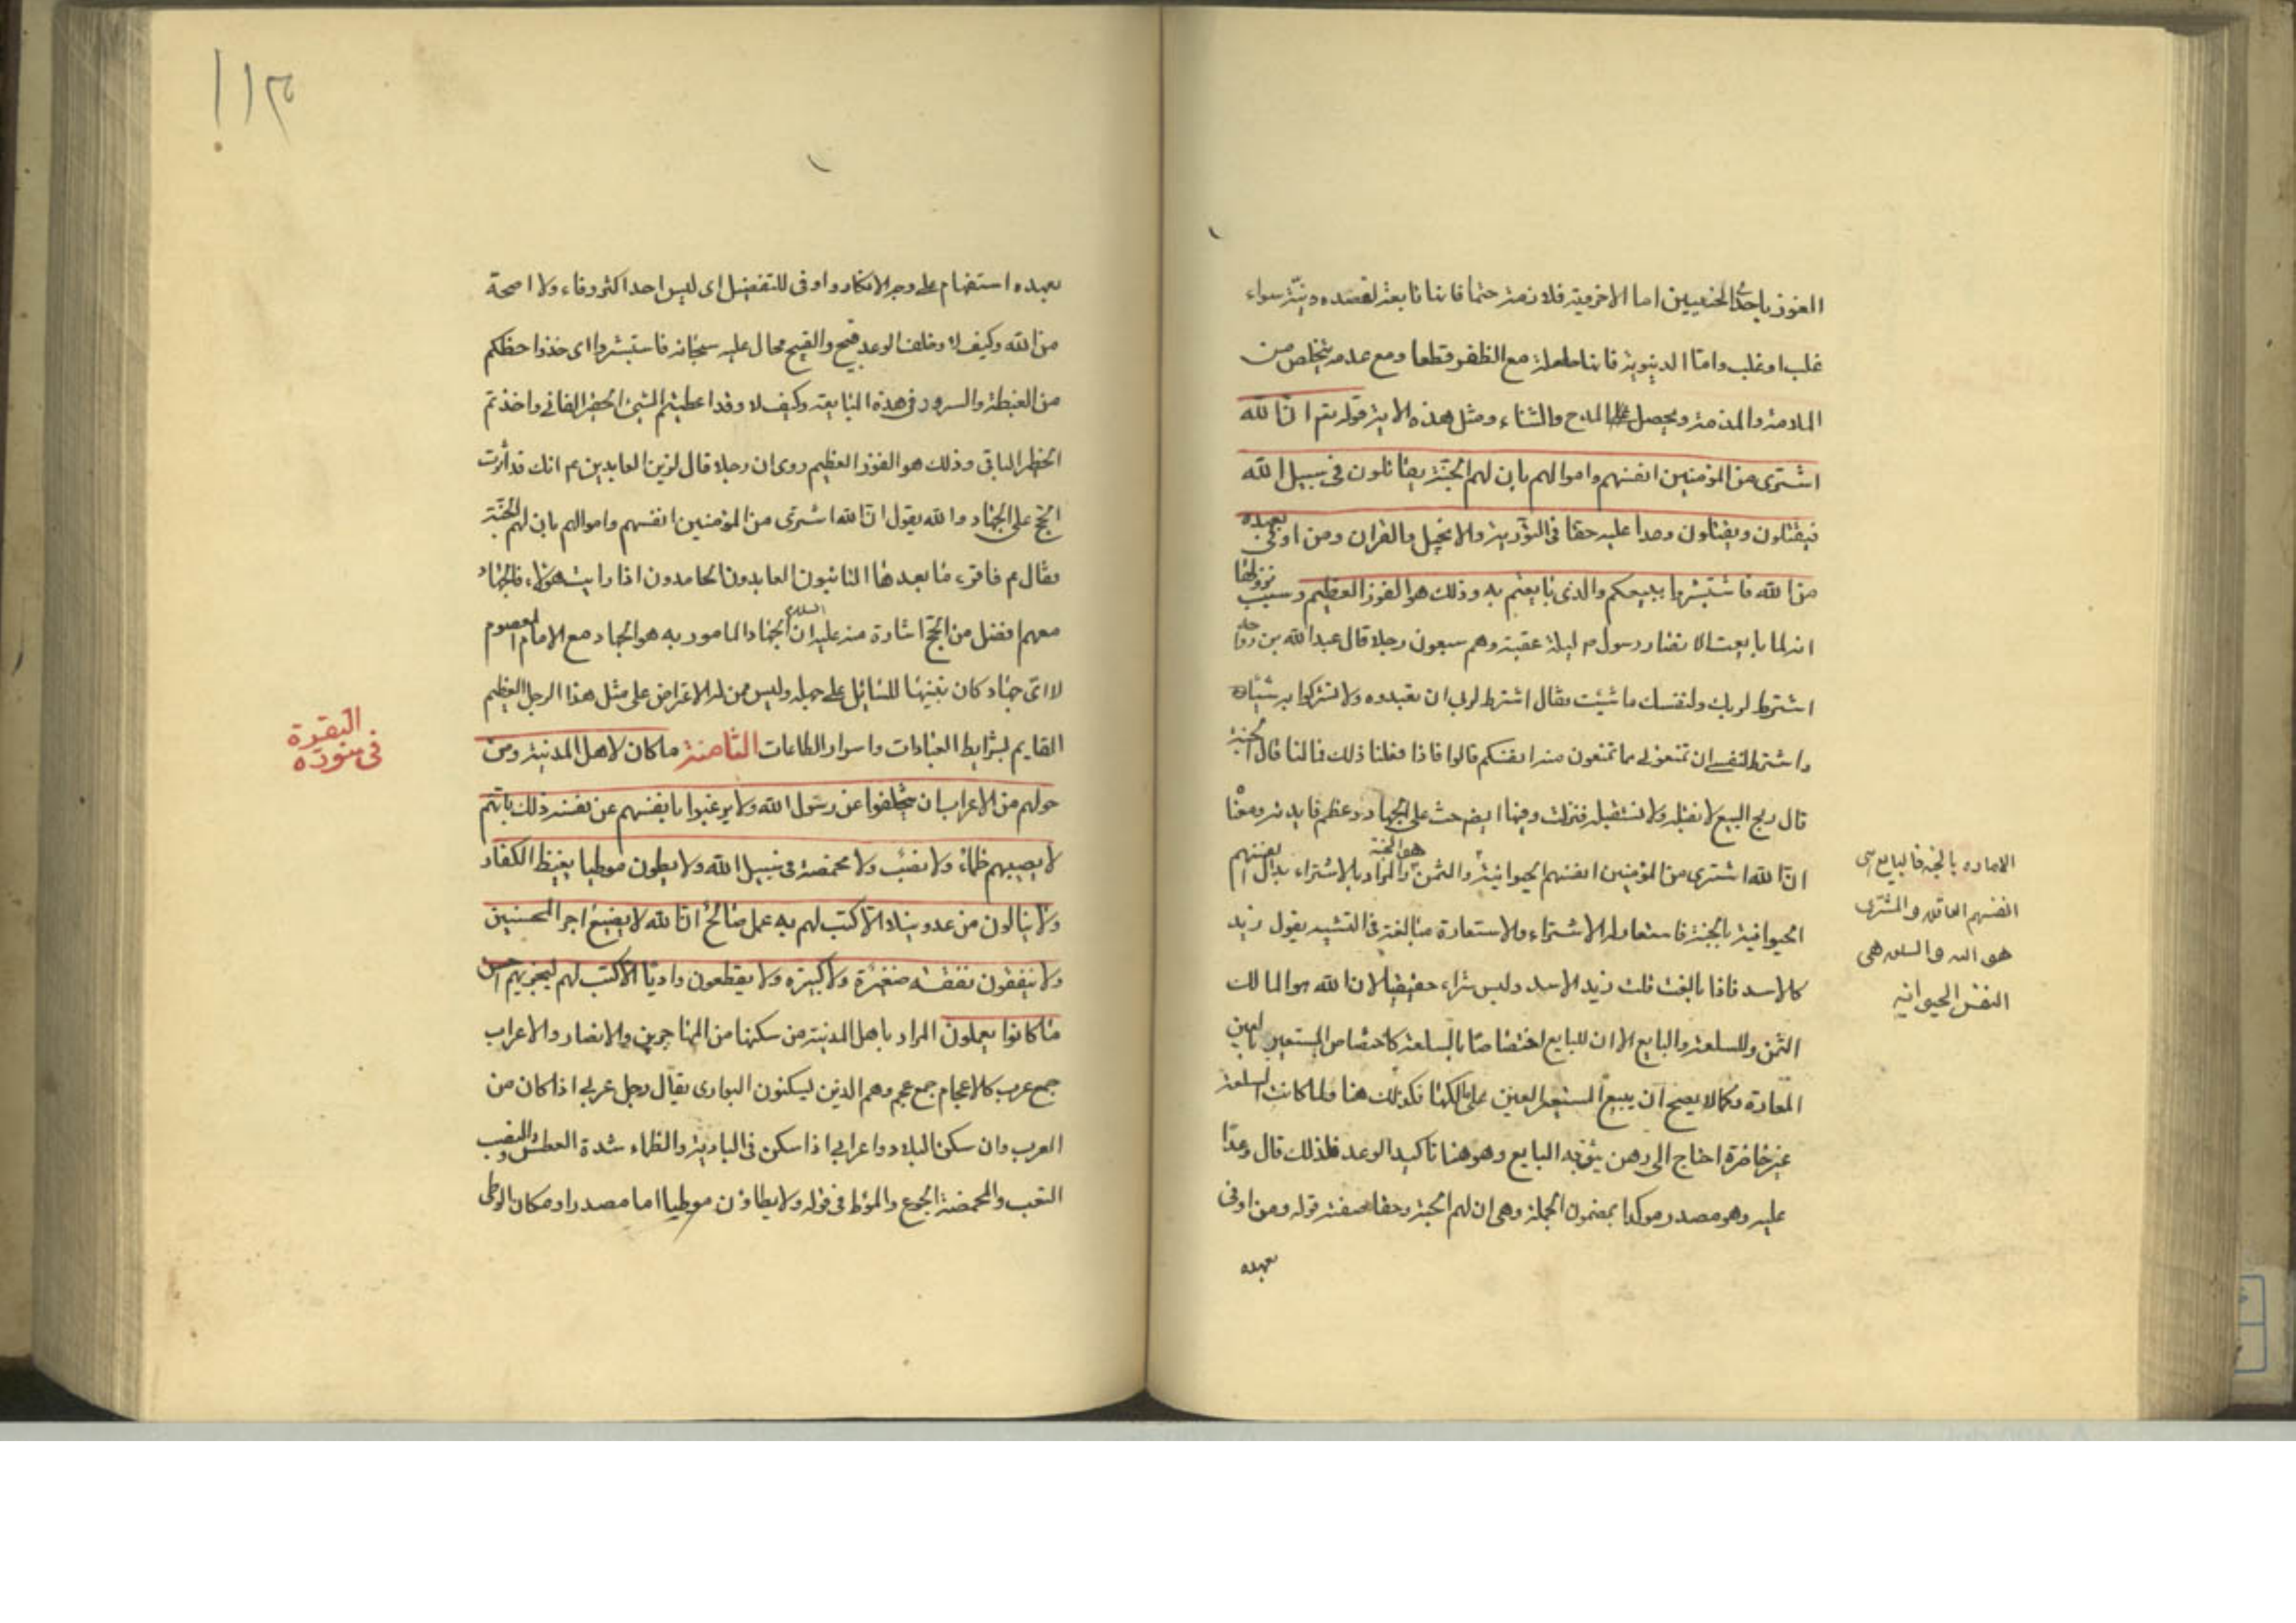 الفوز باحدى الحسنيين اما الاخروية فلازمة حتما فانها تابعة لقصده ونيته سواء
غلب او غلب واما الدنيوية فانها حاصلة مع الظفر قطعا ومع عدمه يتخلص من
الملامة والمذمة ويحصل له المدح والثناء ومثل هذه الاية قوله تم ان الله
اشترى من المؤمنين انفسهم واموالهم بان لهم الجنة يقاتلون في سبيل الله
فيقتلون ويقتلون وعدا عليه حقا في التورية والانجيل والقران ومن اوفى بعهده
من الله فاستبشروا ببيعكم والذى بايعتم به وذلك هو الفوز العظيم وسبب نزولها
انه لما بايعت الانصار رسول م ليلة عقبة وهم سبعون رجلا قال عبد الله بن رواحه
اشترط لربك ولنفسك ما شئت فقال اشترط لربى ان تعبدوه ولا تشركوا به شيئا
واشترط لنفسى ان تمنعونى مما تمنعون منه انفسكم قالوا فاذا فعلنا ذلك فما لنا قال الجنة
قال ربح البيع لا نقيل ولا نستقيل فنزلت وفيها ايض حث على الجهاد وعظم فايدته ومعنا
ان الله اشترى من المؤمنين انفسهم الحيوانية والثمن هو الجنة والمراد بالاشتراء بدال انفسهم
الحيوانية بالجنة فاستعار له الاشتراء والاستعارة مبالغة في التشبيه يقول زيد
كالاسد فاذا بالغت قلت زيد الاسد وليس شراء حقيقيا لان الله هو المالك
الثمن وللسلعة والبايع الا ان للبايع اختصاصا بالسلعة كاختصاص المستعير بالعين
المعارة وكما لا يصح ان يبيع المستعير العين على مالكها فكذلك هنا ولما كانت السلعة
غير حاضرة احتاج الى رهن يثق به البايع وهو هنا تاكيد الوعد فلذلك قال وعدا
عليه وهو مصدر موكدا بمضمون الجملة وهى ان لهم الجنة وحقا صفته قوله ومن اوفى
بعهده
الاماره بالجنه فالبايع هى
انفسهم العاقله والمشترى
هو الله والسلعه هى
النفس الحيوانيه
١١٣
بعهده استفهام على وجه الانكار واوفى للتفضيل اى ليس احد اكثر وفاء ولا اصحة
من الله وكيف لا وخلف الوعد قبيح والقبيح محال عليه سبحانه فاستبشروا اى خذوا حظكم
من الغبطة والسرور في هذه المبايعة وكيف لا وقد اعطيتم الشئ الحقير الفانى واخذتم
الخطر الباقى وذلك هو الفوز العظيم روى ان رجلا قال لزين العابدين م انك قد آثرت
الحج على الجهاد والله يقول ان الله اشترى من المؤمنين انفسهم واموالهم بان لهم الجنة
فقال م فاقرء ما بعدها التائبون العابدون الحامدون اذا رايت هؤلاء فالجهاد
معهم افضل من الحج اشارة منه عليه السلام ان الجهاد المامور به هو الجهاد مع الامام المعصوم
لا اى جهاد كان تنبيها للسائل على جهله وليس ممن له الاعتراض على مثل هذا الرجل العظيم
القايم بشرايط العبادات واسرار الطاعات الثامنة ما كان لاهل المدينة ومن
حولهم من الاعراب ان يتخلفوا عن رسول الله ولا يرغبوا بانفسهم عن نفسه ذلك بانهم
لا يصيبهم ظماء ولا نصب ولا مخمصة في سبيل الله ولا يطون موطيا يغيظ الكفار
ولا ينالون من عدو نيلا الا كتب لهم به عمل صالح ان الله لا يضيع اجر المحسنين
ولا ينفقون نفقة صغيرة ولا كبيره ولا يقطعون واديا الا كتب لهم ليجزيهم احسن
ما كانوا يعملون المراد باهل المدينة من سكنها من المهاجرين والانصار والاعراب
جمع عرب كالاعجام جمع عجم وهم الذين يسكنون البوادى يقال رجل عربى اذا كان من
العرب وان سكن البلاد واعرابى اذا سكن في البادية والظماء شدة العطش والنصب
التعب والمخمصة الجوع والموطا في قوله ولا يطاؤن موطيا اما مصدر او مكان الوطى
في سورة
البقرة